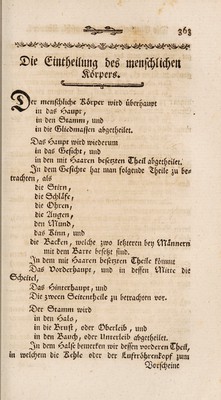 363
Die Eintheilung des menschlichen
Körpers.
Der menschliche Körper wird überhaupt
in das Haupt,
in den Stamm, und
in die Gliedmassen abgetheilet.
Das Haupt wird wiederum
in das Gesicht, und
in den mit Haaren besetzten Theil abgetheilet.
In dem Gesichte hat man folgende Theile zu be-
trachten, als
die Stirn,
die Schläfe,
die Ohren,
die Augen,
den Mund,
das Kinn, und
die Backen, welche zwo letztern bey Männern
mit dem Barte besetzt sind.
In dem mit Haaren besetzten Theile kömmt
Das Vorderhaupt, und in dessen Mitte die
Scheitel,
Das Hinterhaupt, und
Die zween Seitentheile zu betrachten vor.
Der Stamm wird
in den Hals,
in die Brust, oder Oberleib, und
in den Bauch, oder Unterleib abgetheilet.
In dem Halse bemerken wir dessen vorderen Theil,
in welchem die Kehle oder der Luftröhrenkopf zum
Vorscheine